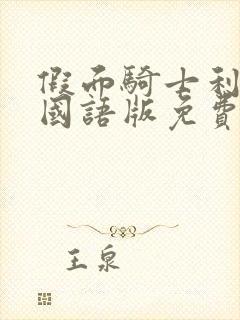 假面騎士利
國語版免費
王泉